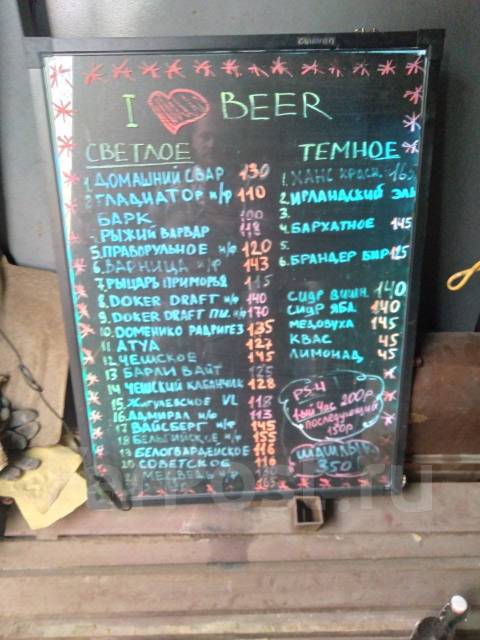 I BEER
СВЕТЛОЕ
1. ДОМАШНИЙ СВАР 130
2. ГЛАДИАТОР н/ф 110
БАРК 100
РЫЖИЙ ВАРВАР 118
5. ПРАВОРУЛЬНОЕ н/ф 120
6. ВАРНИЦА н/ф 143
7. РЫЦАРЬ ПРИМОРЬЯ 115
8. DOKER DRAFT н/ф 140
9. DOKER DRAFT ПШ. н/ф 170
10. ДОМЕНИКО РАДРИГЕЗ 135
11 АТУА 127
12 ЧЕШСКОЕ 145
13 БАРЛИ ВАЙТ 125
14 ЧЕШСКИЙ КАБАНЧИК 128
15. Жигулевское VL 118
16 АДМИРАЛ н/ф 113
17 ВАЙСБЕРГ н/ф 145
18 БЕЛЬГИЙСКОЕ н/ф 155
19 БЕЛОГВАРДЕЙСКОЕ 116
20 СОВЕТСКОЕ 116
21 МЕДВЕДЬ
165
ТЕМНОЕ
1. ХАНС КРАСН.
2. ИРЛАНДСКИЙ ЭЛЬ
3.
4. БАРХАТНОЕ 145
5.
6. БРАНДЕР БИР 125
СИДР ВИШН. 140
СИДР ЯБЛ. 140
МЕДОВУХА 145
КВАС 45
ЛИМОНАД 45
PS-4
1ый ЧАС 200р.
ПОСЛЕДУЮЩИЙ
150р.
ШАШЛЫК
350